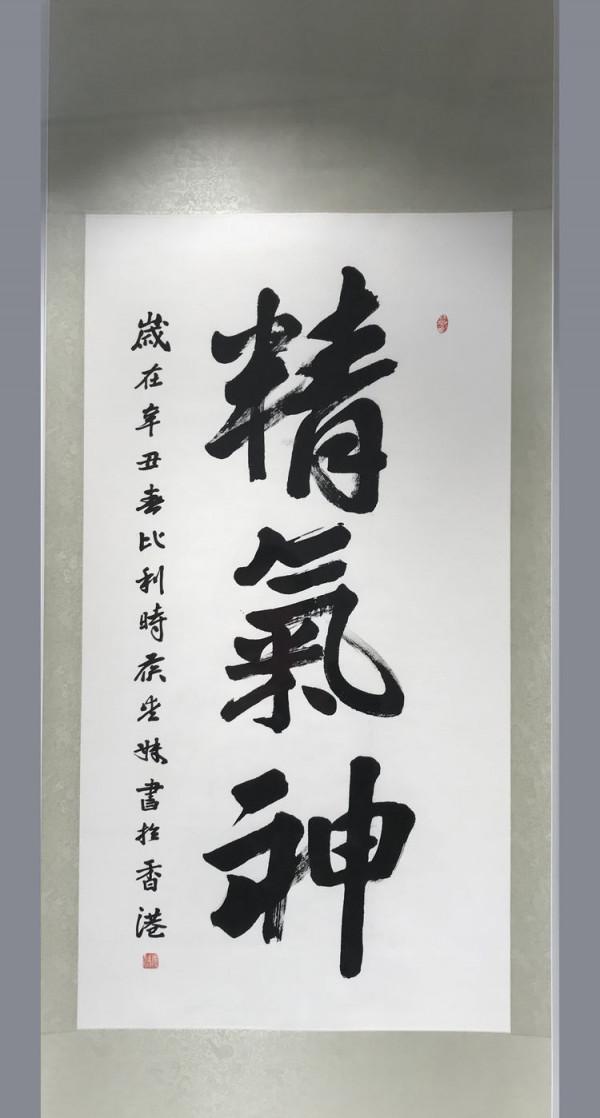 精氣神
歲在辛丑春比利時侯安妹書於香港